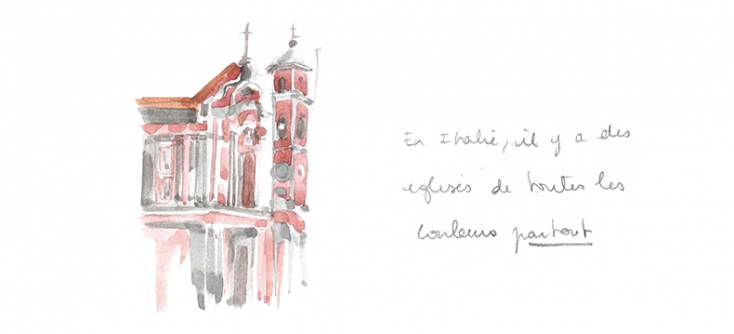 En Italie, il y a des
eglises de toutes les
couleurs partout